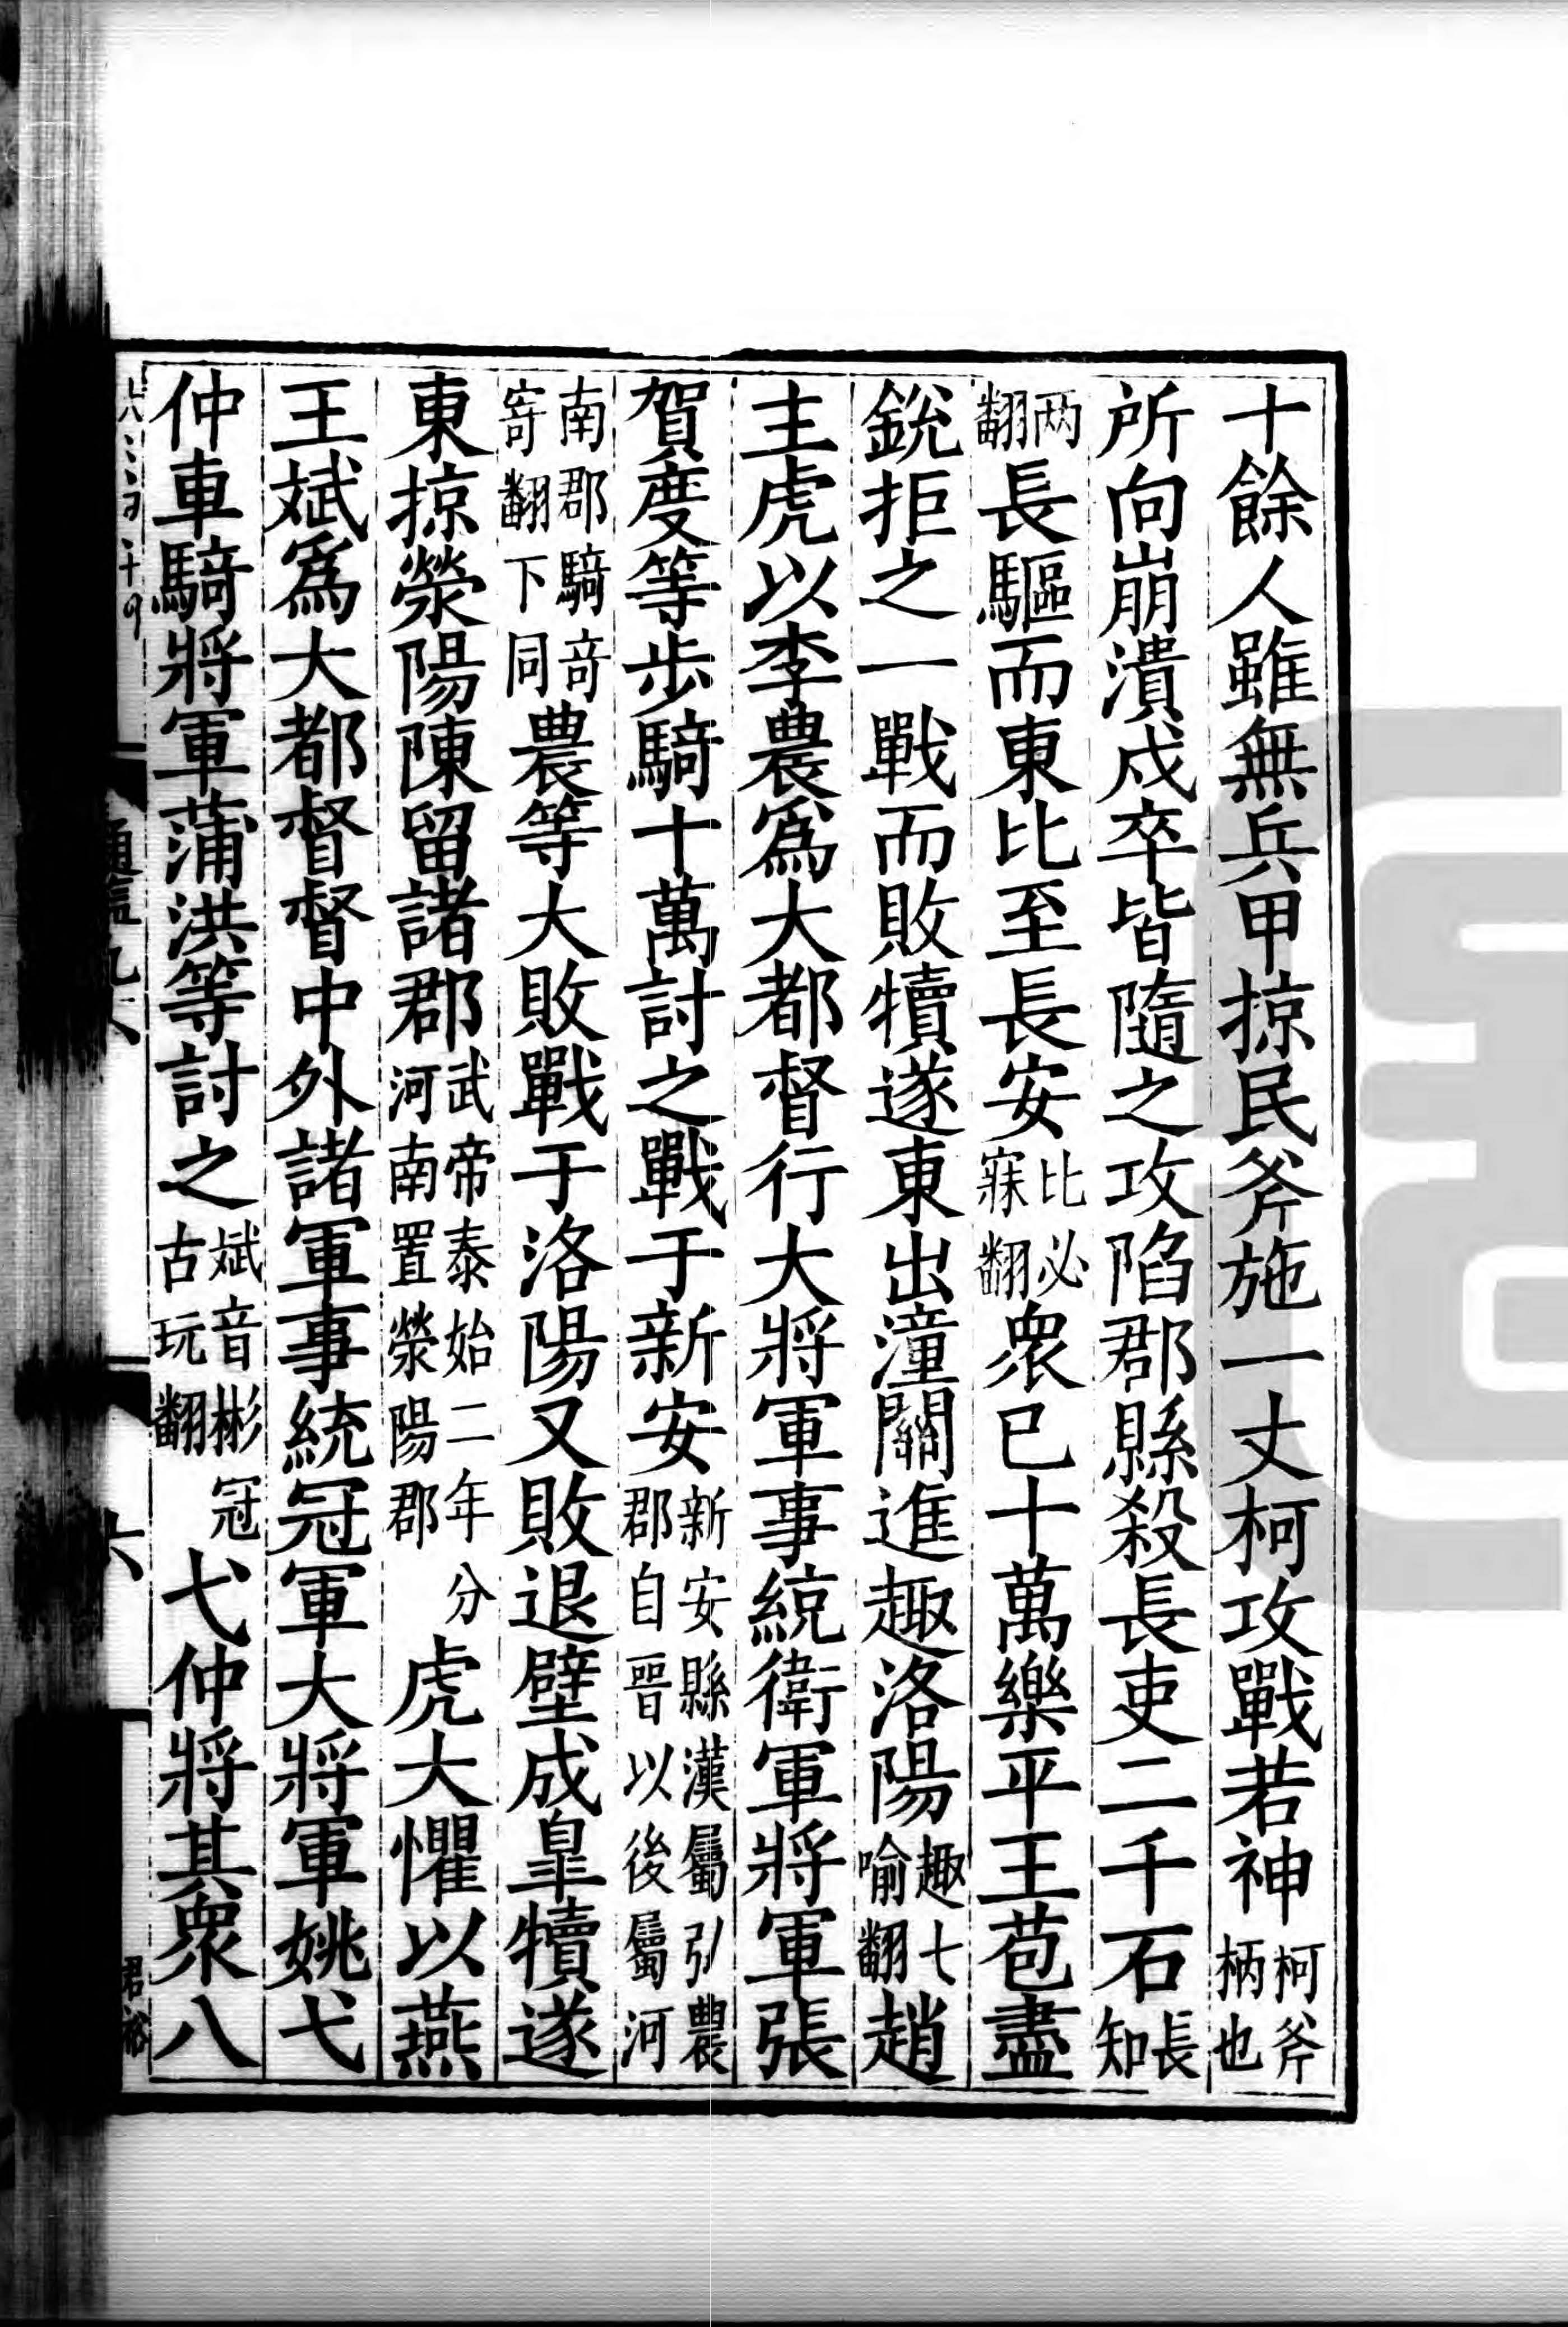 十餘人雖無兵甲掠民斧施一丈柯攻戰若神柯斧柄也
所向崩潰戍卒皆隨之攻陷郡縣殺長吏二千石長知
两翻長驅而東比至長安比必寐翻衆已十萬樂平王苞盡
銳拒之一戰而敗犢遂東出潼關進趣洛陽趣七喻翻趙
主虎以李農爲大都督行大將軍事統衛軍將軍張
賀度等步騎十萬討之戰于新安新安縣漢屬弘農郡自晉以後屬河
南郡騎竒寄翻下同農等大敗戰于洛陽又敗退壁成臯犢遂
東掠滎陽陳留諸郡武帝泰始二年分河南置滎陽郡虎大懼以燕
王斌爲大都督督中外諸軍事統冠軍大將軍姚弋
仲車騎將軍蒲洪等討之斌音彬冠古玩翻弋仲將其衆八
六
君裕